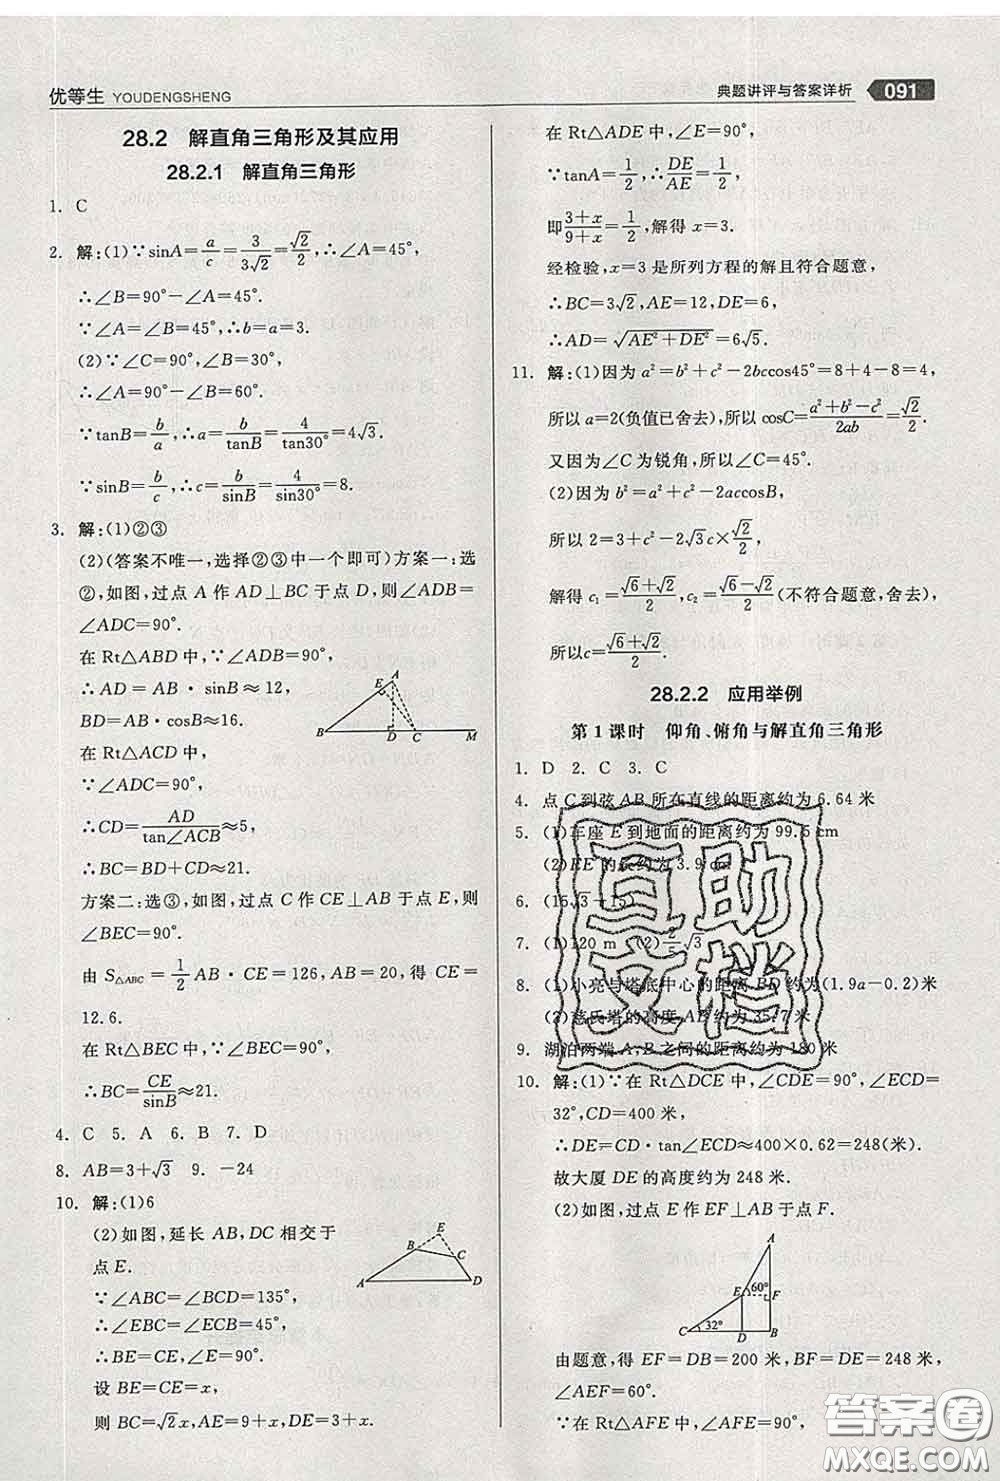 优等生 YOUDENGSHENG
典题讲评与答案详析 091
28.2 解直角三角形及其应用
28.2.1 解直角三角形
1. C
2. 解:(1)∵sinA=a/c=3/(3√2)=√2/2,∴∠A=45°,
∴∠B=90°-∠A=45°.
∵∠A=∠B=45°,∴b=a=3.
(2)∵∠C=90°,∠B=30°,
∴∠A=90°-∠B=60°.
∵tanB=b/a,∴a=b/tanB=4/tan30°=4√3.
∵sinB=b/c,∴c=b/sinB=4/sin30°=8.
3. 解:(1)②③
(2)(答案不唯一,选择②③中一个即可)方案一:选
②,如图,过点 A 作 AD⊥BC 于点 D,则∠ADB=
∠ADC=90°.
在 Rt△ABD 中,∵∠ADB=90°,
∴AD=AB·sinB≈12,
BD=AB·cosB≈16.
在 Rt△ACD 中,
∵∠ADC=90°,
∴CD=AD/tan∠ACB≈5,
∴BC=BD+CD≈21.
A
B D C M
方案二:选③,如图,过点 C 作 CE⊥AB 于点 E,则
∠BEC=90°.
由 S△ABC=1/2 AB·CE=126,AB=20,得 CE=
12.6.
在 Rt△BEC 中,∵∠BEC=90°,
∴BC=CE/sinB≈21.
4. C 5. A 6. B 7. D
8. AB=3+√3 9. -24
10. 解:(1)6
(2)如图,延长 AB,DC 相交于
点 E.
∵∠ABC=∠BCD=135°,
∴∠EBC=∠ECB=45°,
∴BE=CE,∠E=90°.
设 BE=CE=x,
则 BC=√2x,AE=9+x,DE=3+x.
E
B C
A D
在 Rt△ADE 中,∠E=90°,
∵tanA=1/2,∴DE/AE=1/2,
即(3+x)/(9+x)=1/2,解得 x=3.
经检验,x=3 是所列方程的解且符合题意,
∴BC=3√2,AE=12,DE=6,
∴AD=√(AE²+DE²)=6√5.
11. 解:(1)因为 a²=b²+c²-2bccos45°=8+4-8=4,
所以 a=2(负值已舍去),所以 cosC=(a²+b²-c²)/2ab=√2/2.
又因为∠C 为锐角,所以∠C=45°.
(2)因为 b²=a²+c²-2accosB,
所以 2=3+c²-2√3c×√2/2,
解得 c₁=(√6+√2)/2,c₂=(√6-√2)/2(不符合题意,舍去),
所以c=(√6+√2)/2.
28.2.2 应用举例
第 1 课时 仰角、俯角与解直角三角形
1. D 2. C 3. C
4. 点 C 到弦 AB 所在直线的距离约为 6.64 米
5. (1)车座 E 到地面的距离约为 99.5 cm
(2)EE′的长约为 3.9 cm
6. (15√3+15)
7. (1)120 m (2)2/5√3
8. (1)小亮与塔底中心的距离 BD 约为(1.9a-0.2)米
(2)慈氏塔的高度 AB 约为 35.7 米
9. 湖泊两端 A,B 之间的距离约为 180 米
10. 解:(1)∵在 Rt△DCE 中,∠CDE=90°,∠ECD=
32°,CD=400 米,
∴DE=CD·tan∠ECD≈400×0.62=248(米).
故大厦 DE 的高度约为 248 米.
(2)如图,过点 E 作EF⊥AB 于点 F.
A
E 60° F
C 32° D B
由题意,得 EF=DB=200 米,BF=DE=248 米,
∠AEF=60°.
∵在 Rt△AFE 中,∠AFE=90°,
互助
文档
答案圈
MXQE.COM